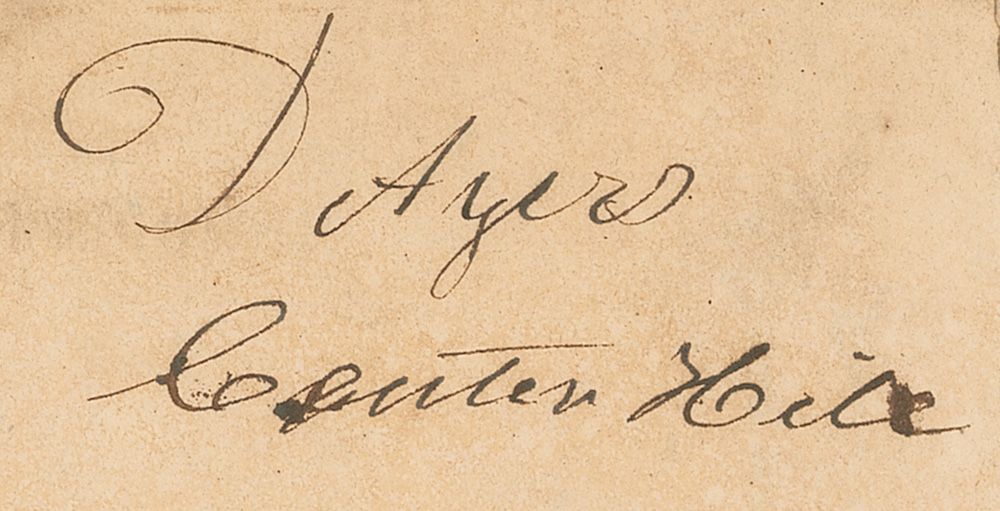 D Ayers
Center Hill